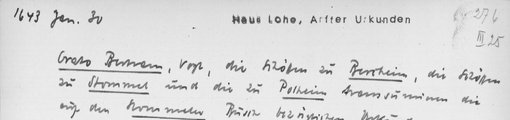 1643 Jan. 30 Haus Lohe, Arffer Urkunden 276
II 25
Crato Bertram, Vogt, die Schöffen zu Bercheim, die Schöffen
zu Stommel und die zu Polheim transsumieren die
auf den Stommeler Busch bezüglichen